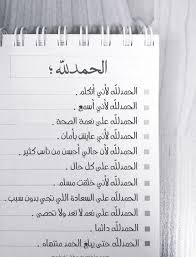 الحمدلله ؛
الحمدلله لأني أتكلم .
الحمدلله لأني أسمع .
الحمدلله على نعمة الصحة .
الحمدلله لأني عايش بأمان .
الحمدلله لأن حالي أحسن من ناس كثير .
الحمدلله على كل حال .
الحمدلله لأني خلقت مسلم .
الحمدلله على السعادة اللي تجي بدون سبب .
الحمدلله على نعم لا تعد ولا تحصى .
الحمدلله دائما .
الحمدلله حتى يبلغ الحمد منتهاه .